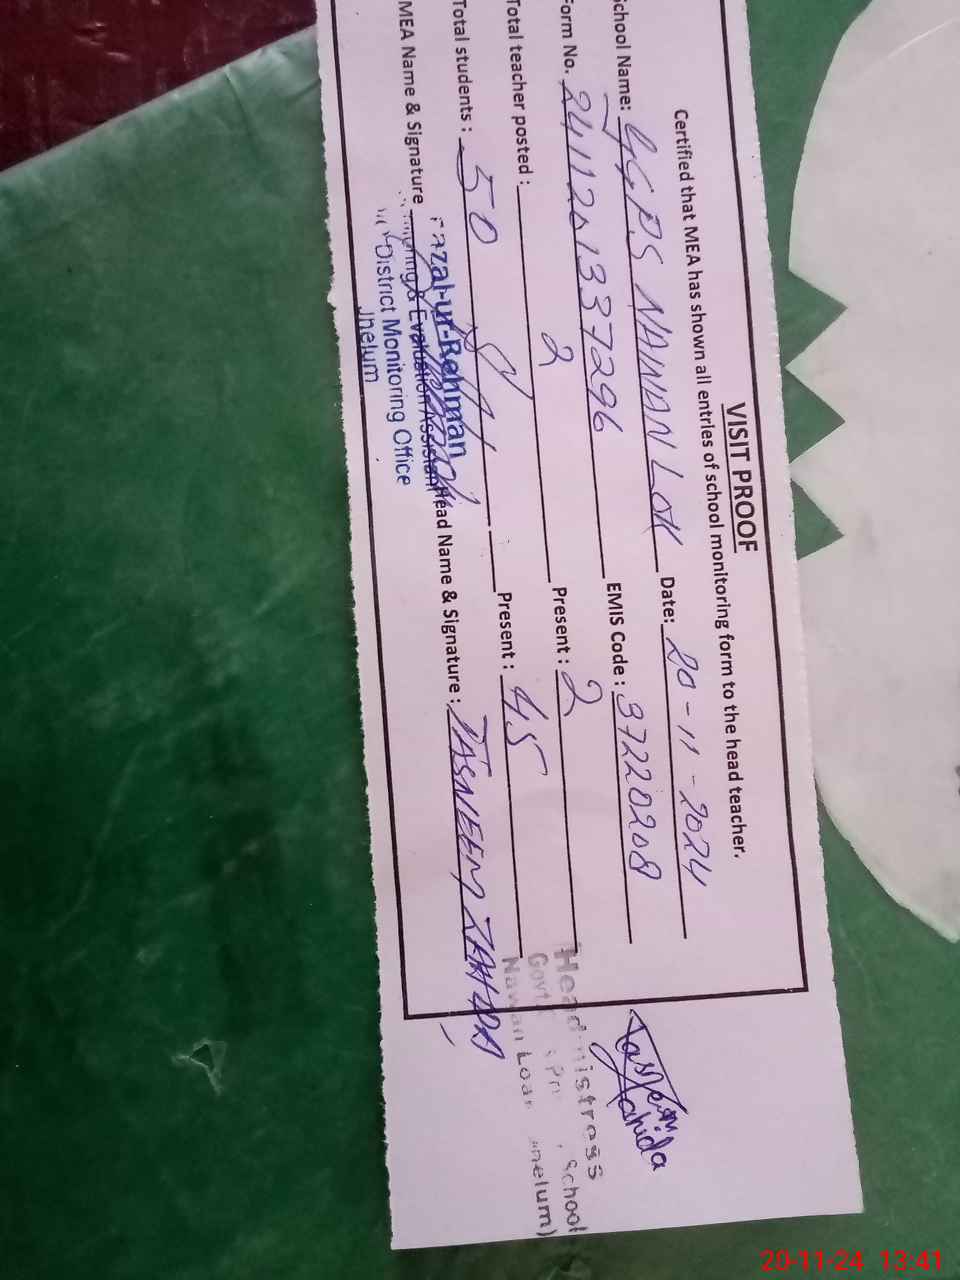 VISIT PROOF
Certified that MEA has shown all entries of school monitoring form to the head teacher.
School Name: GGPS NAWAN LOK Date: 20-11-2024
Form No. 2411201337296 EMIS Code: 37220208
Total teacher posted: 2 Present: 2
Total students: 50 Present: 45
MEA Name & Signature Head Name & Signature: TASNEEM ZAHIDA
Fazal-ur-Rehman
Monitoring & Evaluation Assistant
District Monitoring Office
Jhelum
Tasneem
Zahida
Headmistress
Govt. School
Nawan Loak Jhelum)
20-11-24 13:41